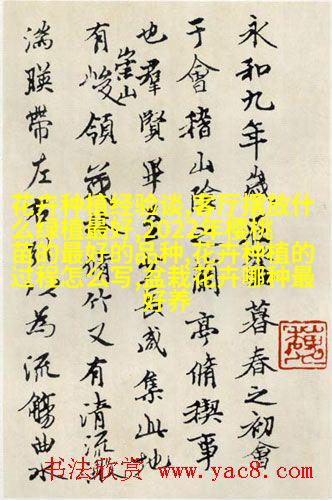 永和九年歲暮春之初會
于會稽山陰之蘭亭脩稧事
也羣賢畢長咸集此地
有崇山峻領茂脩竹又有清流激
湍暎帶左右為流觴曲水
花卉种植经验谈,客厅摆放什
么绿植最好,2022年樱桃
苗的最好的品种,花卉种植的
过程怎么写,盆栽花卉哪种最
好养
书法欣赏 www.yac8.com